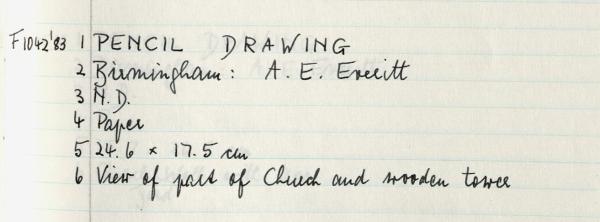 F1042'83 1 PENCIL DRAWING
2 Birmingham: A. E. Everitt
3 N.D.
4 Paper
5 24.6 × 17.5 cm
6 View of part of Church and wooden tower